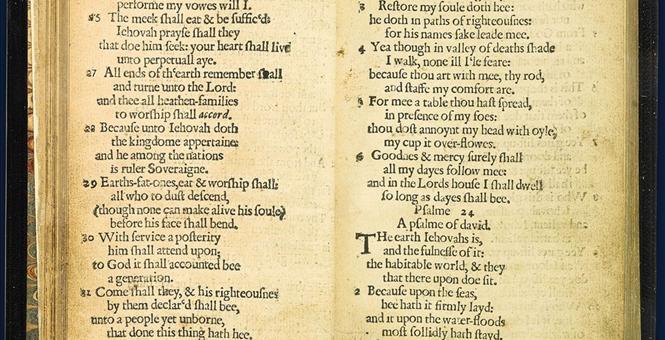 performe my vowes will I.
25 The meek shall eat & be suffic'd;
Iehovah prayse shall they
that doe him seek: your heart shall live
unto perpetuall aye.
27 All ends of th'earth remember shall
and turne unto the Lord:
and thee all heathen-families
to worship shall accord.
28 Because unto Iehovah doth
the kingdome appertaine:
and he among the nations
is ruler Soveraigne.
29 Earths-fat-ones, eat & worship shall:
all who to dust descend,
(though none can make alive his soule)
before his face shall bend.
30 With service a posterity
him shall attend upon;
to God it shall accounted bee
a generation.
31 Come shall they, & his righteousnes
by them declar'd shall bee,
unto a people yet unborne,
that done this thing hath hee.
3 Restore my soule doth hee:
he doth in paths of righteousnes:
for his names sake leade mee.
4 Yea though in valley of deaths shade
I walk, none ill I'le feare:
because thou art with mee, thy rod,
and staffe my comfort are.
5 For mee a table thou hast spread,
in presence of my foes:
thou dost annoynt my head with oyle,
my cup it over-flowes.
6 Goodnes & mercy surely shall
all my dayes follow mee:
and in the Lords house I shall dwell
so long as dayes shall bee.
Psalme 24
A psalme of david.
THe earth Iehovahs is,
and the fulnesse of it:
the habitable world, & they
that there upon doe sit.
2 Because upon the seas,
hee hath it firmly layd:
and it upon the water-floods
most sollidly hath stayd.